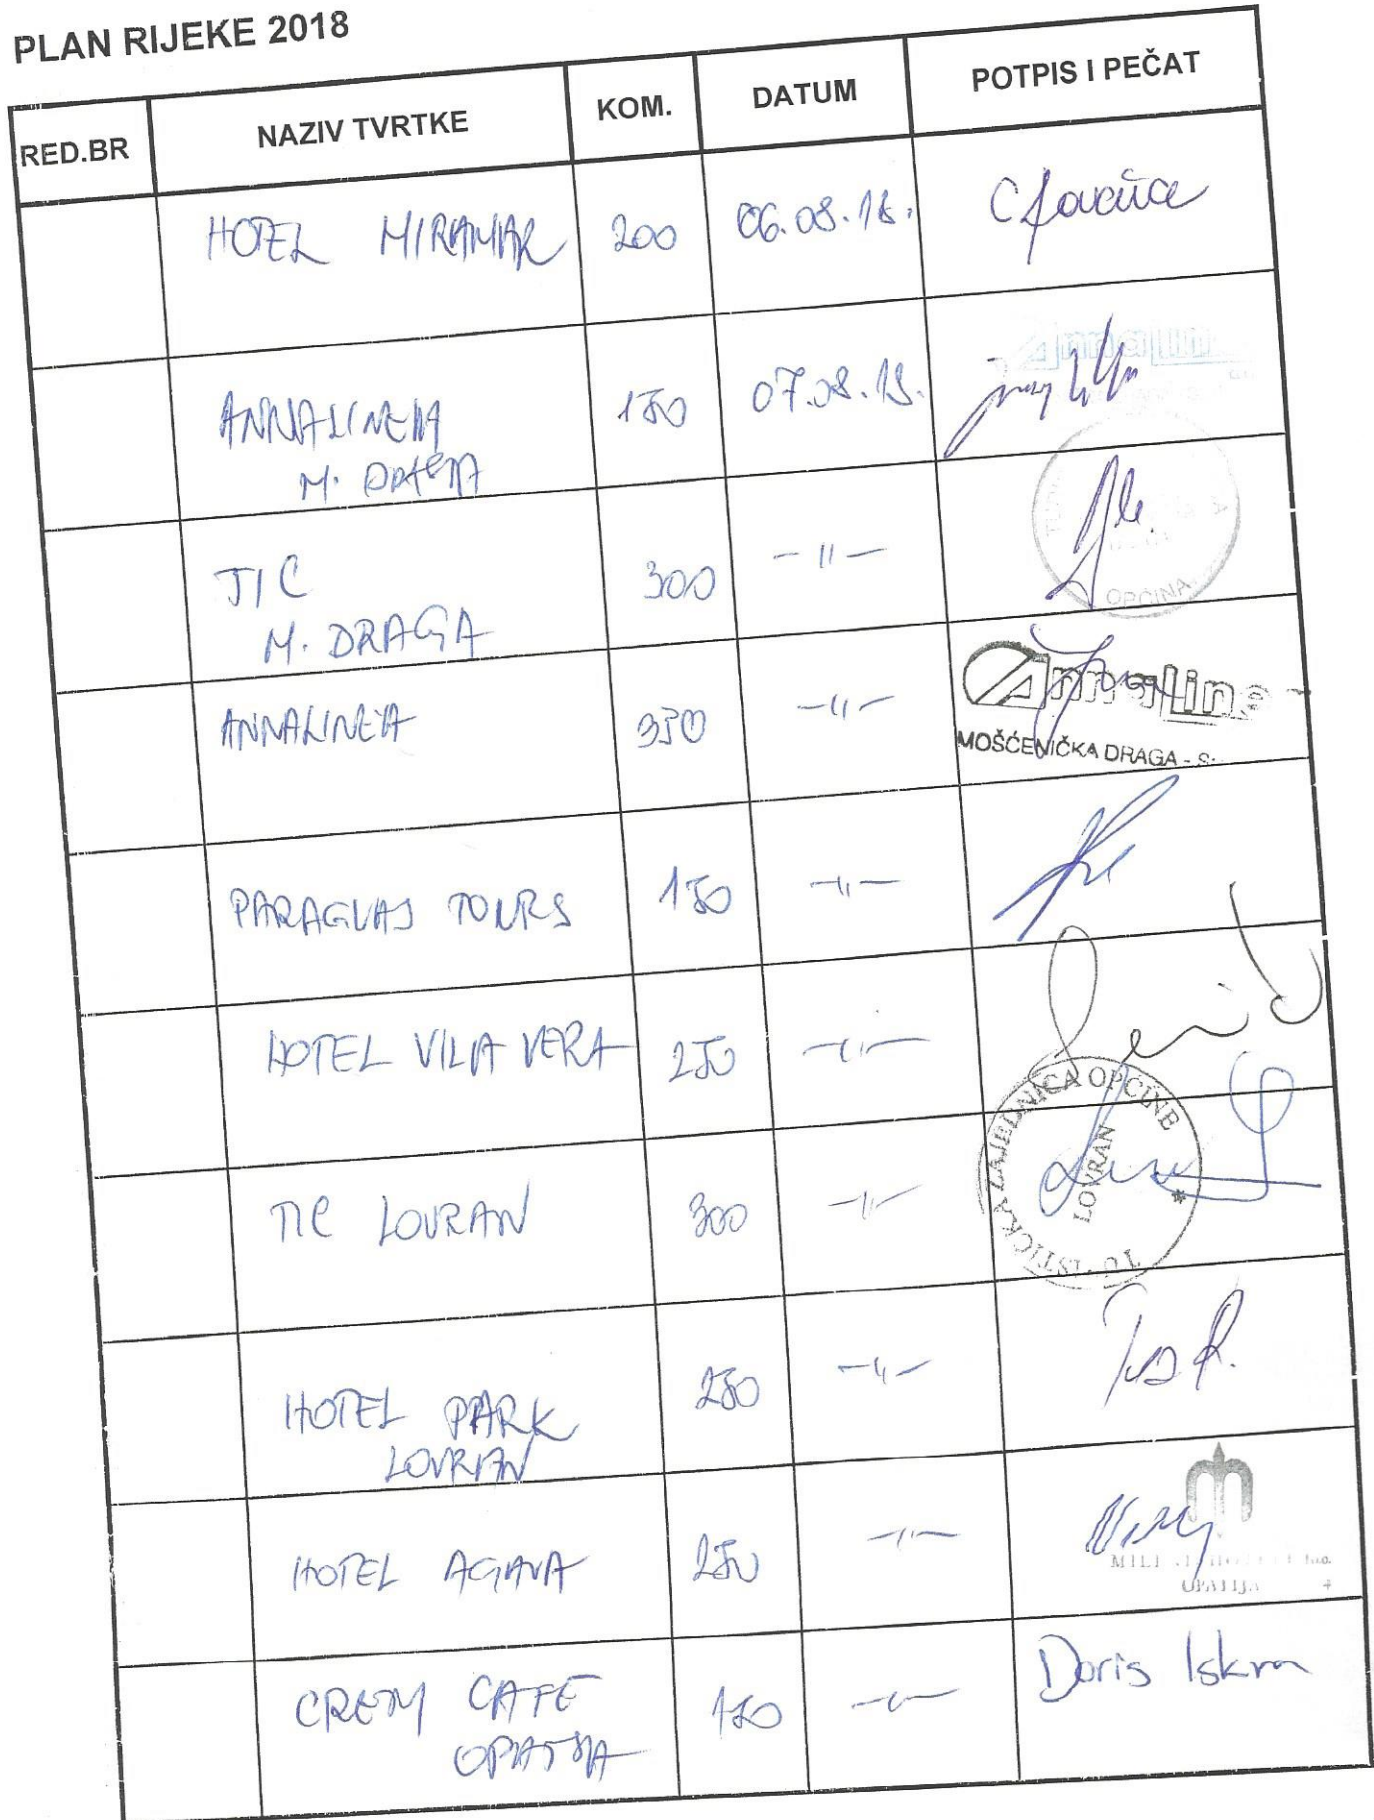 PLAN RIJEKE 2018
RED.BR NAZIV TVRTKE KOM. DATUM POTPIS I PEČAT
HOTEL MIRAMAR 200 06.08.18.
ANNALINEA 150 07.08.18.
M. DRAGA
TIC 300 -11-
M. DRAGA
OPĆINA
ANNALINEA 350 -11-
AnnaLine
MOŠĆENIČKA DRAGA -
PARAGVAJ TOURS 150 -11-
HOTEL VILA VERA 250 -11-
TIC LOVRAN 300 -11-
TURISTIČKA ZAJEDNICA OPĆINE
LOVRAN
HOTEL PARK 250 -11-
LOVRAN
HOTEL AGAVA 250 -11-
OPATIJA
CREAM CAFE 150 -11- Doris Iskra
OPATIJA